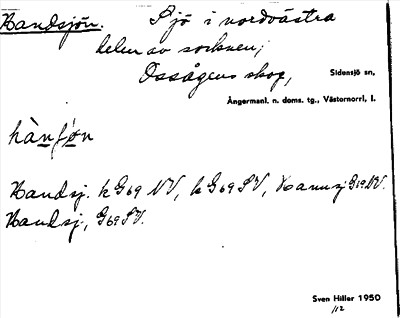 Handsjön. Sjö i nordvästra
delen av socknen;
skog, Sidensjö sn,
Ångermanl. n. doms. tg., Västernorrl. l.
Handsj. k G69 NV, k G69 SV,
Handsj., G69 SV.
Sven Hiller 1950
/12